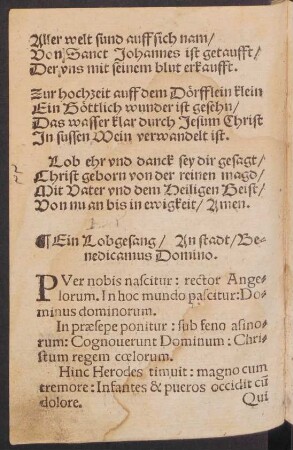 Aller welt sund auff sich nam/
Von Sanct Johannes ist getaufft/
Der vns mit seinem blut erkaufft.
Zur hochzeit auff dem Dörfflein klein
Ein Göttlich wunder ist gesehn/
Das wasser klar durch Jesum Christ
In süssen Wein verwandelt ist.
Lob ehr vnd danck sey dir gesagt/
Christ geborn von der reinen magd/
Mit Vater vnd dem Heiligen Geist/
Von nu an bis in ewigkeit/ Amen.
¶ Ein Lobgesang/ An stadt/ Be-
nedicamus Domino.
PVer nobis nascitur: rector Ange-
lorum. In hoc mundo pascitur: Do-
minus dominorum.
In præsepe ponitur: sub feno asino-
rum: Cognouerunt Dominum: Chri-
stum regem cœlorum.
Hinc Herodes timuit: magno cum
tremore: Infantes & pueros occidit cū
dolore. Qui